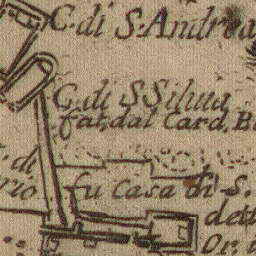 C. di S. Andrea
C. di S Silvia
fat. dal Card. B
di
rio
fu casa di S.
dett
Or.